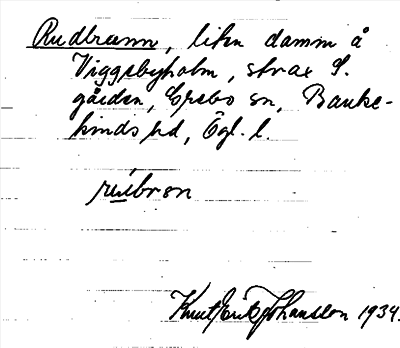 Rudbrunn, liten damm å
Viggebyholm, strax S.
gården, Örebo sn, Banke-
kinds hd, Ögl. l.
rubrøn
Knut Erik Johansson 1934.